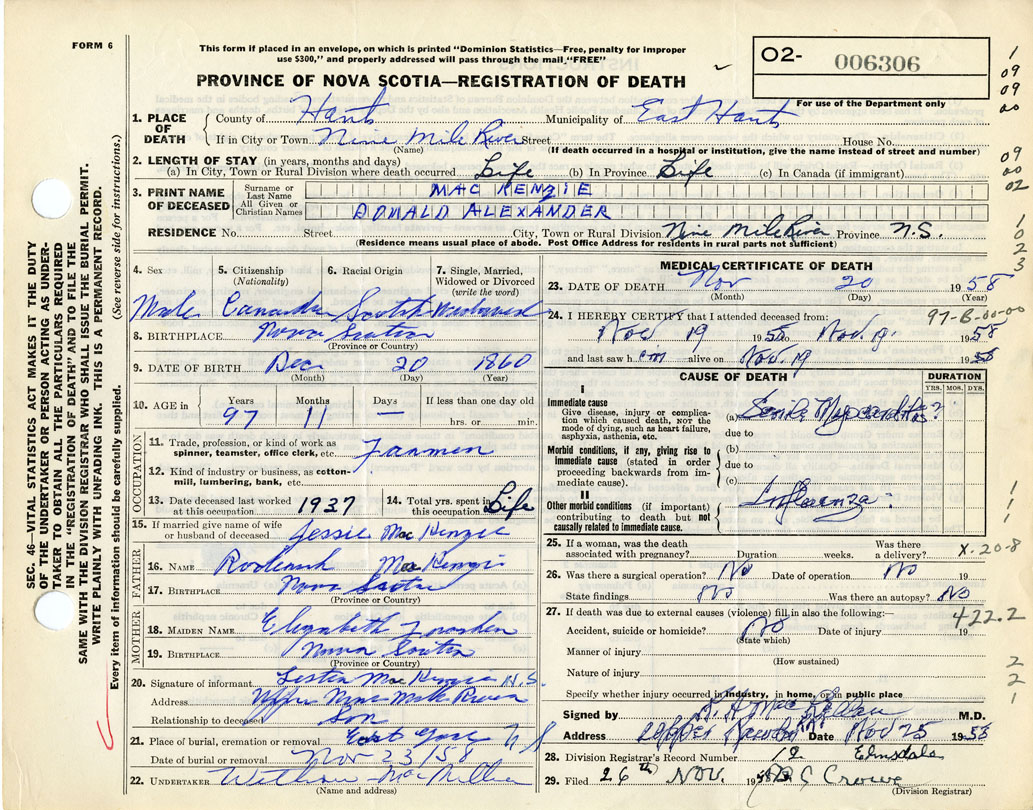 FORM 6
This form if placed in an envelope, on which is printed "Dominion Statistics—Free, penalty for improper
use $300," and properly addressed will pass through the mail "FREE"
PROVINCE OF NOVA SCOTIA—REGISTRATION OF DEATH
O2- 006306
For use of the Department only
1. PLACE OF DEATH
County of Hants Municipality of East Hants
If in City or Town Nine Mile River Street House No.
(Name) (If death occurred in a hospital or institution, give the name instead of street and number)
2. LENGTH OF STAY (in years, months and days)
(a) In City, Town or Rural Division where death occurred Life (b) In Province Life (c) In Canada (if immigrant)
3. PRINT NAME OF DECEASED
Surname or Last Name MAC KENZIE
All Given or Christian Names DONALD ALEXANDER
RESIDENCE No. Street City, Town or Rural Division Nine Mile River Province N.S.
(Residence means usual place of abode. Post Office Address for residents in rural parts not sufficient)
4. Sex 5. Citizenship (Nationality) 6. Racial Origin 7. Single, Married, Widowed or Divorced (write the word)
Male Canadian Scotch Widowed
8. BIRTHPLACE Nova Scotia
(Province or Country)
9. DATE OF BIRTH Dec 20 1860
(Month) (Day) (Year)
10. AGE in Years Months Days If less than one day old
97 11 — hrs. or min.
OCCUPATION
11. Trade, profession, or kind of work as spinner, teamster, office clerk, etc. Farmer
12. Kind of industry or business, as cotton-mill, lumbering, bank, etc.
13. Date deceased last worked at this occupation 1937 14. Total yrs. spent in this occupation Life
15. If married give name of wife or husband of deceased Jessie Mac Kenzie
FATHER
16. NAME Roderick Mac Kenzie
17. BIRTHPLACE Nova Scotia
(Province or Country)
MOTHER
18. MAIDEN NAME Elizabeth
19. BIRTHPLACE Nova Scotia
(Province or Country)
20. Signature of informant Lester MacKenzie N.S.
Address Upper Nine Mile River
Relationship to deceased Son
21. Place of burial, cremation or removal East Gore N S
Date of burial or removal Nov 23/58
22. UNDERTAKER William MacMillan
(Name and address)
MEDICAL CERTIFICATE OF DEATH
23. DATE OF DEATH Nov 20 1958
(Month) (Day) (Year)
24. I HEREBY CERTIFY that I attended deceased from:
97-B-00-00
Nov 19 1958 to Nov. 19 1958
and last saw him alive on Nov. 19 1958
CAUSE OF DEATH DURATION
YRS. MOS. DYS.
I
Immediate cause
Give disease, injury or complication which caused death, NOT the mode of dying, such as heart failure, asphyxia, asthenia, etc.
(a) Senile Myocarditis?
due to
Morbid conditions, if any, giving rise to immediate cause (stated in order proceeding backwards from immediate cause).
(b)
due to
(c)
II
Other morbid conditions (if important) contributing to death but not causally related to immediate cause.
Influenza
25. If a woman, was the death associated with pregnancy? Duration weeks. Was there a delivery?
X-20-8
26. Was there a surgical operation? No Date of operation No 19
State findings No Was there an autopsy? No
27. If death was due to external causes (violence) fill in also the following:—
422.2
Accident, suicide or homicide? No Date of injury 19
(State which)
Manner of injury
(How sustained)
Nature of injury
Specify whether injury occurred in industry, in home, or in public place
Signed by M.D.
Address Date Nov 25 1958
28. Division Registrar's Record Number 12 Elmsdale
29. Filed 26th Nov. 1958 Crowe
(Division Registrar)
SEC. 46—VITAL STATISTICS ACT MAKES IT THE DUTY
OF THE UNDERTAKER OR PERSON ACTING AS UNDER-
TAKER TO OBTAIN ALL THE PARTICULARS REQUIRED
IN THE 'REGISTRATION OF DEATH' AND TO FILE THE
SAME WITH THE DIVISION REGISTRAR WHO SHALL ISSUE THE BURIAL PERMIT.
WRITE PLAINLY WITH UNFADING INK. THIS IS A PERMANENT RECORD.
Every item of information should be carefully supplied. (See reverse side for instructions.)
1
09
09
00
09
00
02
1
0
2
3
1
1
1
1
2
2
1